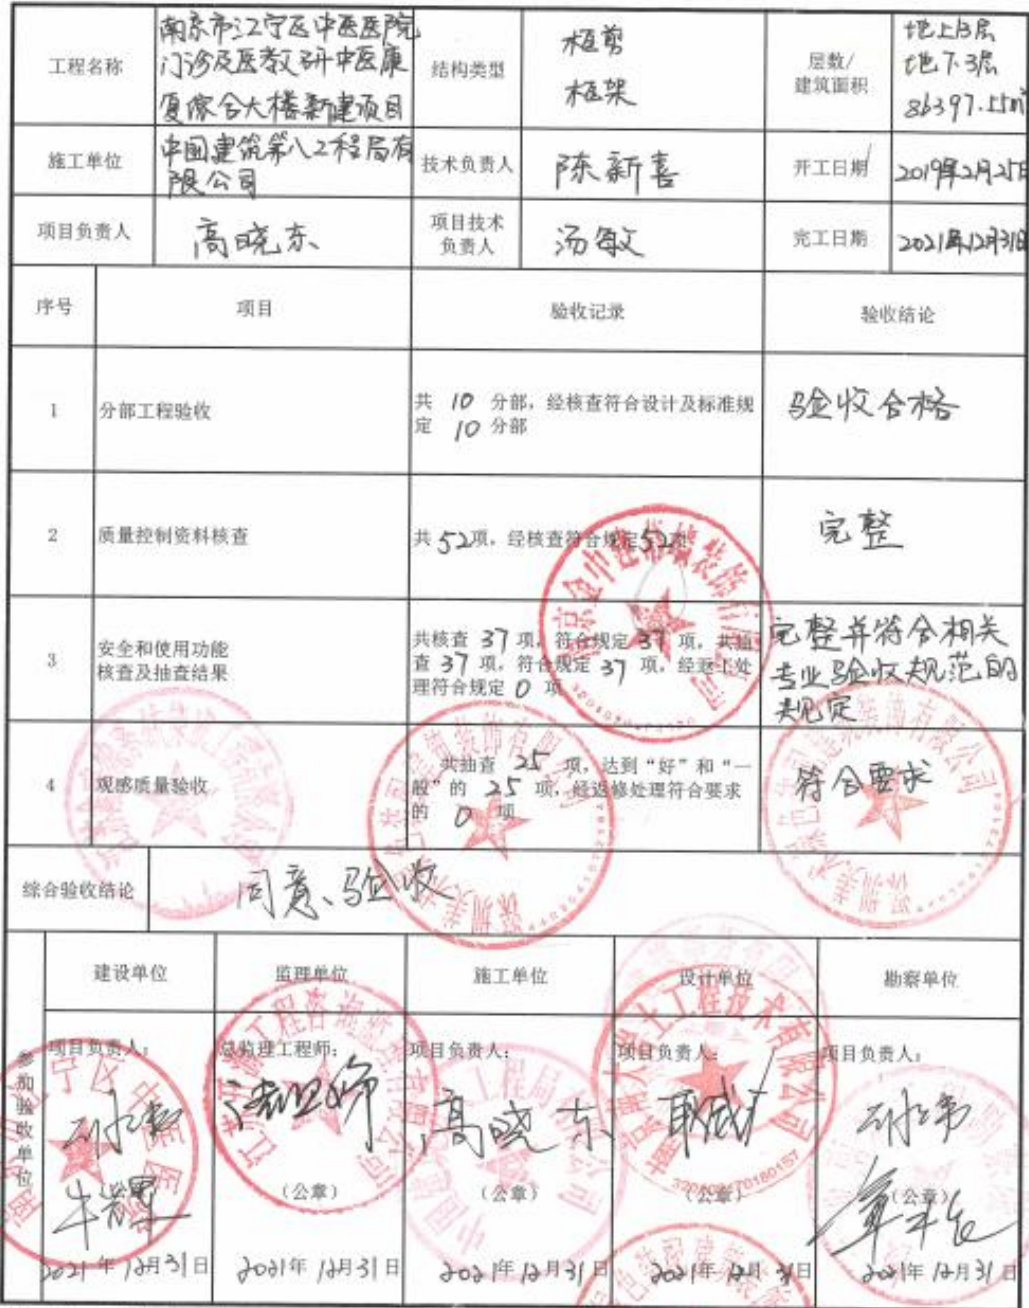 工程名称
南京市江宁区中医医院
门诊及医教研中医康
复综合大楼新建项目
结构类型
框剪
框架
层数/
建筑面积
地上13层
地下3层
86397.55㎡
施工单位
中国建筑第八工程局有
限公司
技术负责人
陈新喜
开工日期
2019年2月25日
项目负责人
高晓东
项目技术
负责人
汤敏
完工日期
2021年12月31日
序号
项目
验收记录
验收结论
1
分部工程验收
共 10 分部,经核查符合设计及标准规
定 10 分部
验收合格
2
质量控制资料核查
共52项,经核查符合规定52项
完整
3
安全和使用功能
核查及抽查结果
共核查 37 项,符合规定 37 项,共抽
查 37 项,符合规定 37 项,经返工处
理符合规定 0 项
完整并符合相关
专业验收规范的
规定
4
观感质量验收
共抽查 25 项,达到“好”和“一
般”的 25 项,经返修处理符合要求
的 0 项
符合要求
综合验收结论
同意验收
参加验收单位
建设单位
监理单位
施工单位
设计单位
勘察单位
项目负责人:
总监理工程师:
项目负责人:
项目负责人:
项目负责人:
高晓东
(公章)
(公章)
(公章)
(公章)
2021年12月31日
2021年12月31日
2021年12月31日
2021年12月31日
2021年12月31日